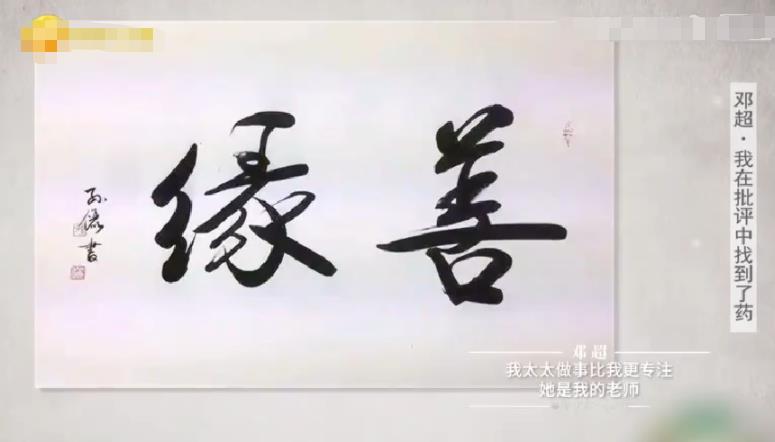 善缘
孙俪书
邓超·我在批评中找到了药
邓超
我太太做事比我更专注
她是我的老师